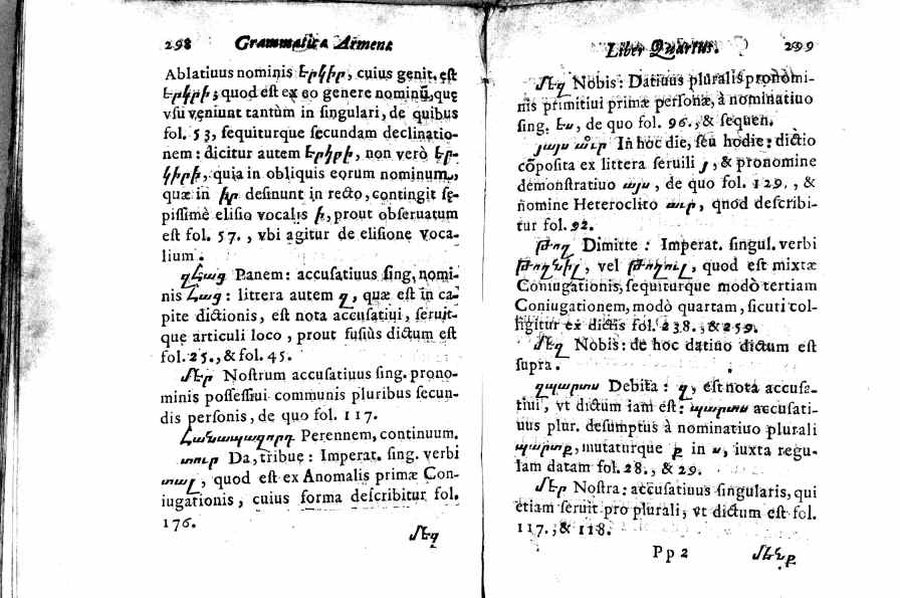 298 Grammatica Armena
Ablatiuus nominis երկիր, cuius genit. est
երկրի; quod est ex eo genere nominũ, quę
vsu veniunt tantùm in singulari, de quibus
fol. 53, sequiturque secundam declinatio-
nem: dicitur autem երկրի, non verò եր-
կիրի, quia in obliquis eorum nominum,
quæ in իր desinunt in recto, contingit sę-
pissimè elisio vocalis ի, prout obseruatum
est fol. 57., vbi agitur de elisione voca-
lium.
զհաց Panem: accusatiuus sing. nomi-
nis հաց: littera autem զ, quæ est in ca-
pite dictionis, est nota accusatiui, seruit-
que articuli loco, prout fusiùs dictum est
fol. 25., & fol. 45.
մեր Nostrum accusatiuus sing. prono-
minis possessiui communis pluribus secun-
dis personis, de quo fol. 117.
հանապազորդ Perennem, continuum.
տուր Da, tribue: Imperat. sing. verbi
տալ, quod est ex Anomalis primæ Con-
iugationis, cuius forma describitur fol.
176.
մեզ
Liber Quartus. 299
մեզ Nobis: Datiuus pluralis pronomi-
nis primitiui primæ personæ, à nominatiuo
sing. ես, de quo fol. 96., & sequen.
յայս աւր In hoc die, seu hodie: dictio
cõposita ex littera seruili յ, & pronomine
demonstratiuo այս, de quo fol. 129., &
nomine Heteroclito աւր, quod describi-
tur fol. 92.
թող Dimitte: Imperat. singul. verbi
թողնիլ, vel թողուլ, quod est mixtæ
Coniugationis, sequiturque modò tertiam
Coniugationem, modò quartam, sicuti col-
ligitur ex dictis fol. 238., & 259.
մեզ Nobis: de hoc datiuo dictum est
supra.
զպարտս Debita: զ, est nota accusa-
tiui, vt dictum iam est: պարտս accusati-
uus plur. desumptus à nominatiuo plurali
պարտք, mutaturque ք in ս, iuxta regu-
lam datam fol. 28., & 29.
մեր Nostra: accusatiuus singularis, qui
etiam seruit pro plurali, vt dictum est fol.
117., & 118.
Pp 2 մենք